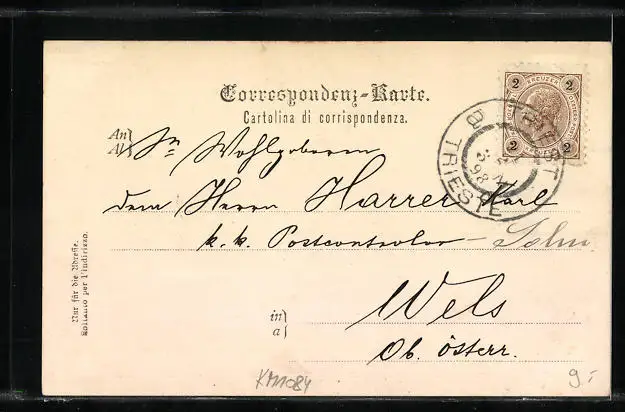 Correspondenz-Karte.
Cartolina di corrispondenza.
2 KREUZER 2
2 2
TRIEST
TRIESTE
98
An
Al
Sr Wohlgeboren
dem Herrn Harrer Karl
k. k. Postcontrolor – Sohn
in
a
Wels
Ob. österr.
Nur für die Adresse.
Soltanto per l'indirizzo.
KM1084
9.-